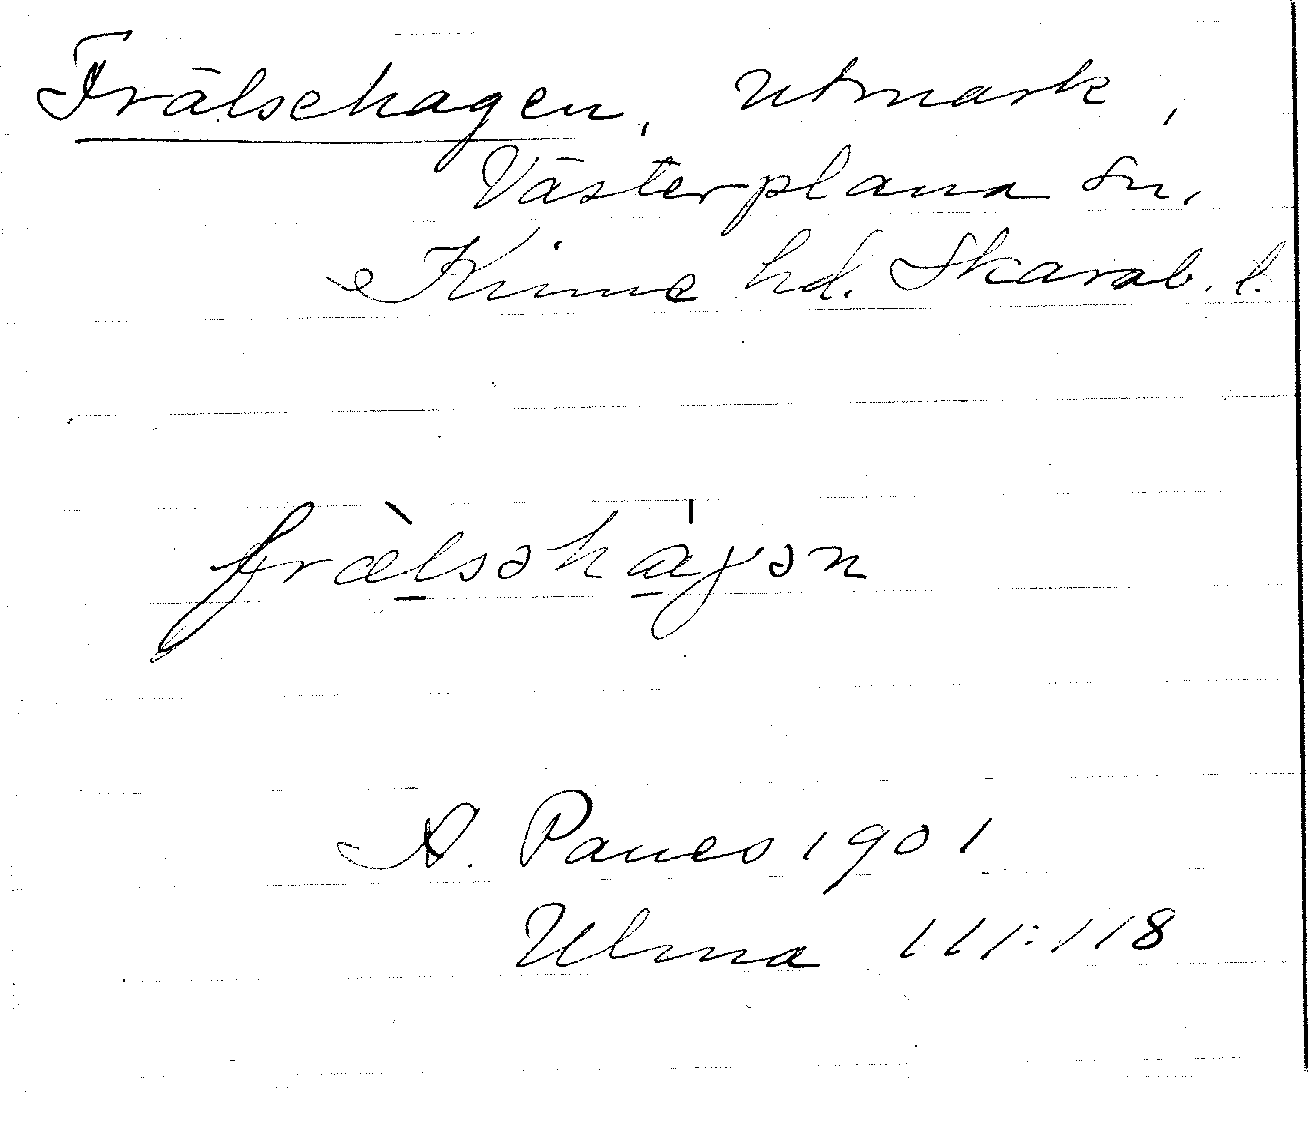 Frälsehagen, utmark,
Västerplana sn,
Kinne hd. Skarab. l.
fræ̀lsəha̍gən
A. Paues 1901
Ulma 111:118